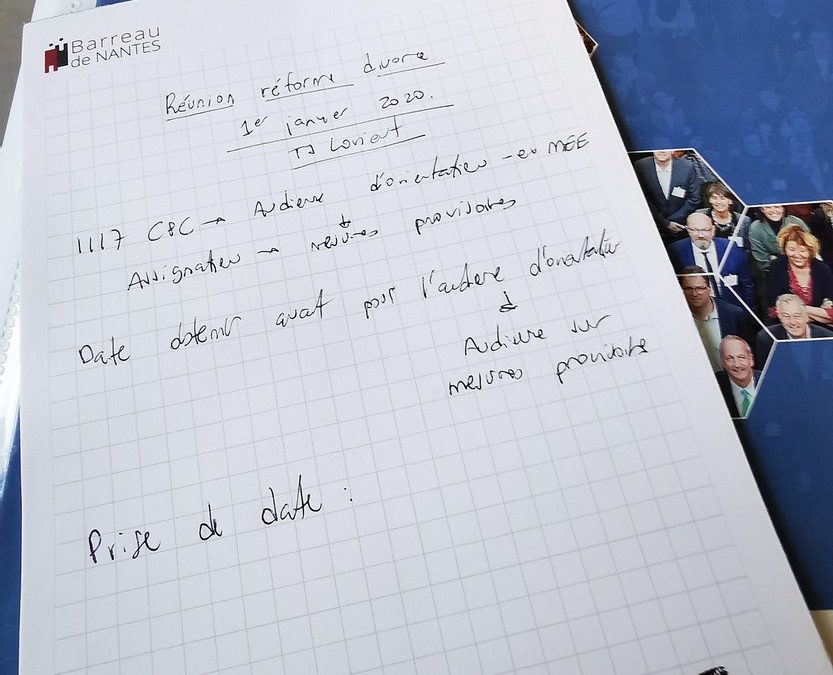 Barreau
de NANTES
Réunion réforme divorce
1er janvier 2020.
TJ Lorient
1117 CPC → Audience d'orientation - en MEE
Assignation → mesures provisoires
Date obtenir avant pour l'audience d'orientation
Audience sur
mesures provisoires
Prise de date :